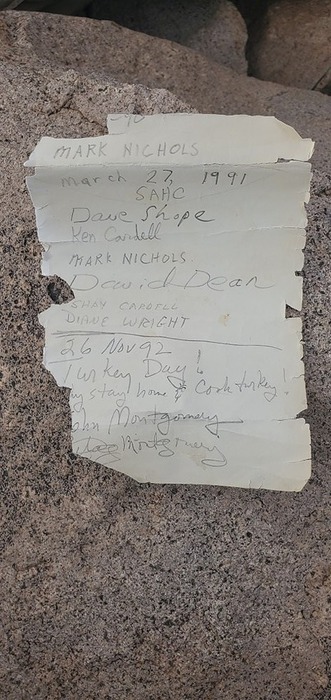 -90
MARK NICHOLS
March 27, 1991
SAHC
Dave Shope
Ken Cardell
MARK NICHOLS
David Dean
SHAY CARDELL
DIANE WRIGHT
26 Nov 92
Turkey Day!
stay home & Cook turkey!
John Montgomery
Montgomery